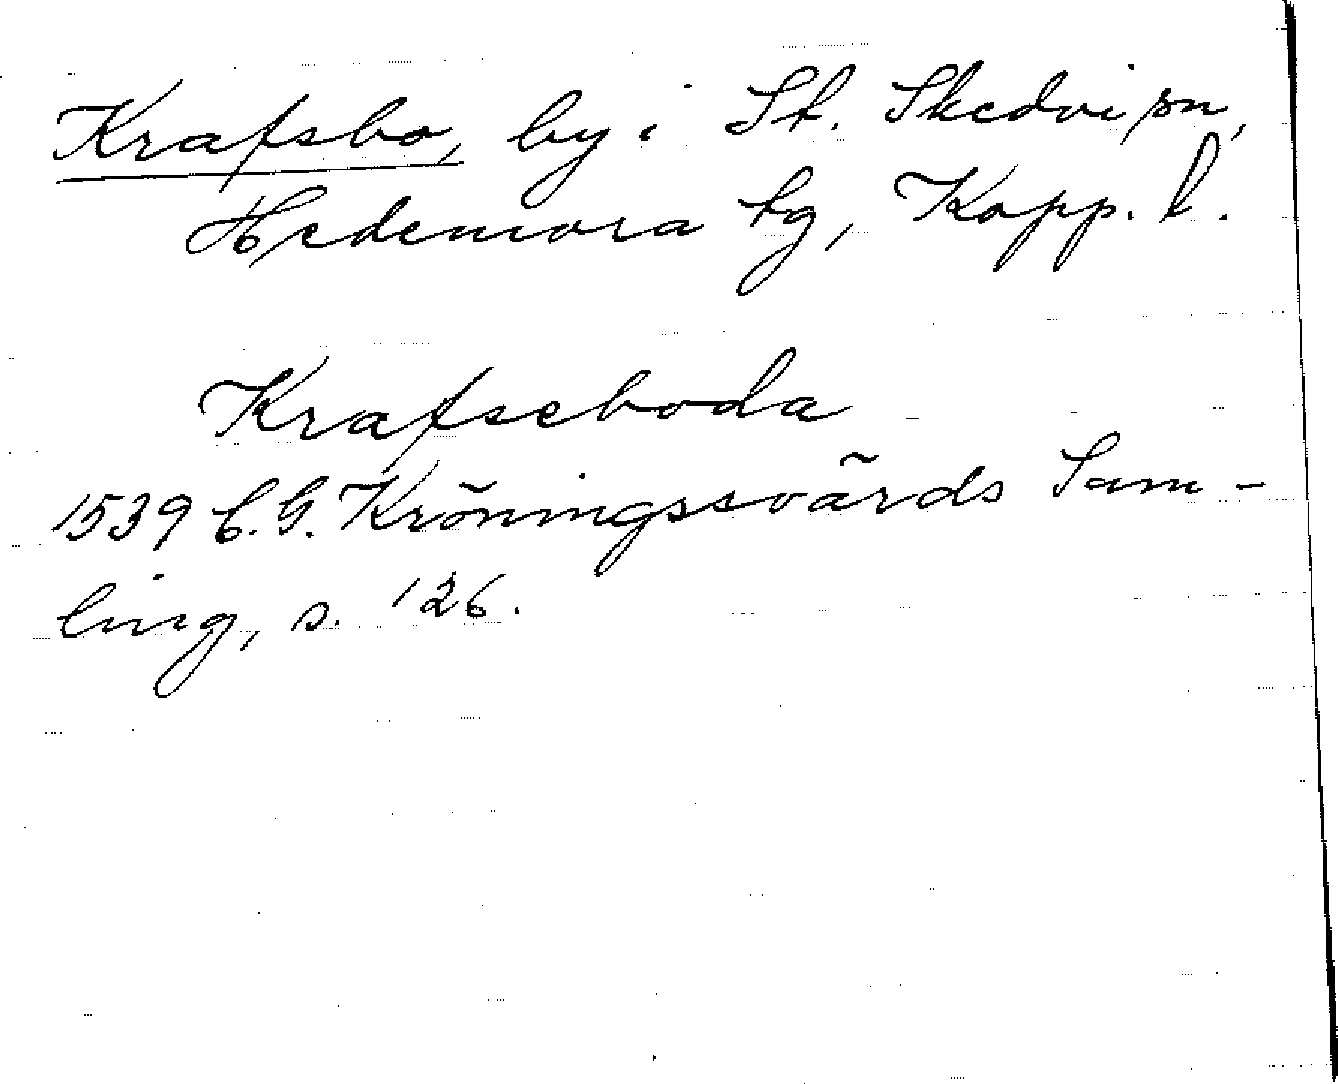 Krafsbo, by i St. Skedvi sn,
Hedemora tg, Kopp. l.
Krafseboda
1539 C. G. Kröningssvärds Sam-
ling, s. 126.